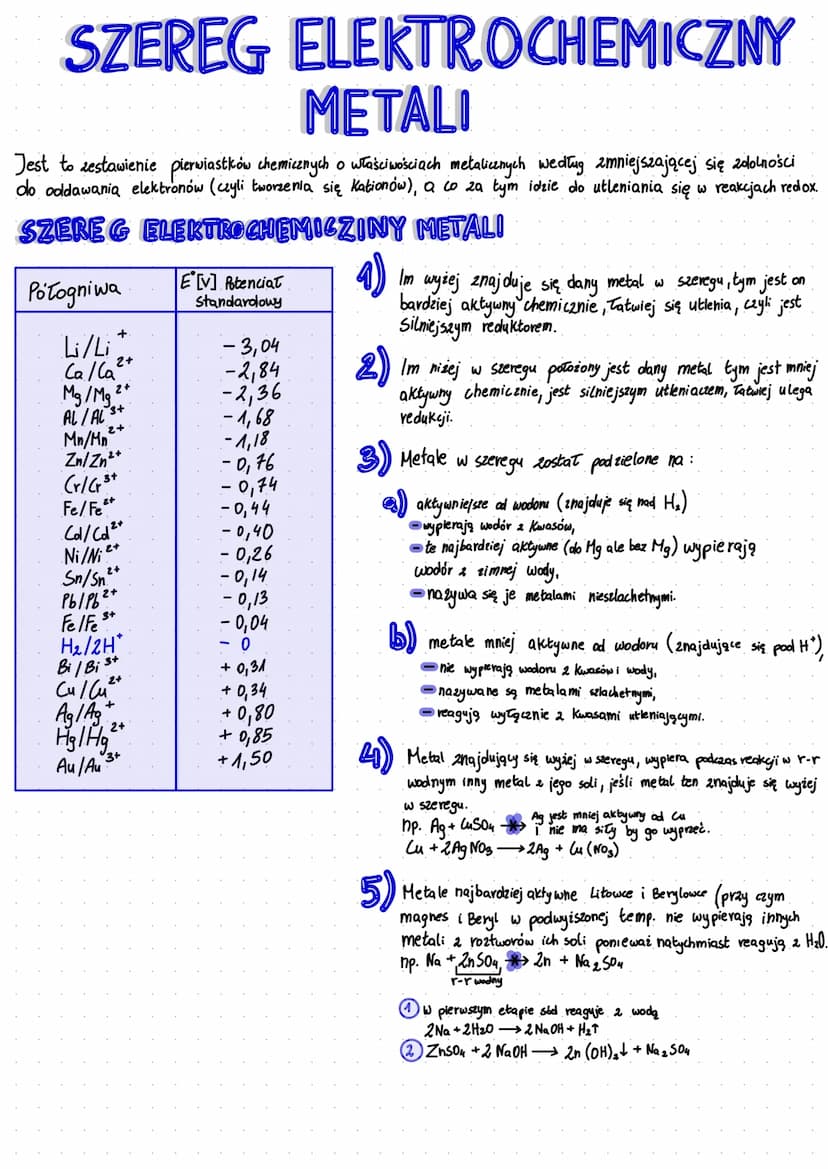 SZEREG ELEKTROCHEMICZNY
METALI
Jest to zestawienie pierwiastków chemicznych o właściwościach metalicznych według zmniejszającej się zdolności
do oddawania elektronów (czyli tworzenia się kationów), a co za tym idzie do utleniania się w reakcjach redox.
SZEREG ELEKTROCHEMICZINY METALI
Półogniwa E°[V] Potencjał
standardowy
Li/Li⁺ - 3,04
Ca/Ca²⁺ - 2,84
Mg/Mg²⁺ - 2,36
Al/Al³⁺ - 1,68
Mn/Mn²⁺ - 1,18
Zn/Zn²⁺ - 0,76
Cr/Cr³⁺ - 0,74
Fe/Fe²⁺ - 0,44
Cd/Cd²⁺ - 0,40
Ni/Ni²⁺ - 0,26
Sn/Sn²⁺ - 0,14
Pb/Pb²⁺ - 0,13
Fe/Fe³⁺ - 0,04
H₂/2H⁺ - 0
Bi/Bi³⁺ + 0,31
Cu/Cu²⁺ + 0,34
Ag/Ag⁺ + 0,80
Hg/Hg²⁺ + 0,85
Au/Au³⁺ + 1,50
1) Im wyżej znajduje się dany metal w szeregu, tym jest on
bardziej aktywny chemicznie, łatwiej się utlenia, czyli jest
silniejszym reduktorem.
2) Im niżej w szeregu położony jest dany metal tym jest mniej
aktywny chemicznie, jest silniejszym utleniaczem, łatwiej ulega
redukcji.
3) Metale w szeregu został podzielone na:
a) aktywniejsze od wodoru (znajduje się nad H₂)
- wypierają wodór z kwasów,
- te najbardziej aktywne (do Mg ale bez Mg) wypierają
wodór z zimnej wody,
- nazywa się je metalami nieszlachetnymi.
b) metale mniej aktywne od wodoru (znajdujące się pod H⁺),
- nie wypierają wodoru z kwasów i wody,
- nazywane są metalami szlachetnymi,
- reagują wyłącznie z kwasami utleniającymi.
4) Metal znajdujący się wyżej w szeregu, wypiera podczas reakcji w r-r
wodnym inny metal z jego soli, jeśli metal ten znajduje się wyżej
w szeregu.
np. Ag + CuSO₄ → Ag jest mniej aktywny od Cu
i nie ma siły by go wyprzeć.
Cu + 2AgNO₃ → 2Ag + Cu(NO₃)
5) Metale najbardziej aktywne Litowce i Berylowce (przy czym
magnes i Beryl w podwyższonej temp. nie wypierają innych
metali z roztworów ich soli ponieważ natychmiast reagują z H₂O.
np. Na + ZnSO₄ → Zn + Na₂SO₄
r-r wodny
1 W pierwszym etapie sód reaguje z wodą
2Na + 2H₂O → 2NaOH + H₂↑
2 ZnSO₄ + 2NaOH → Zn(OH)₂↓ + Na₂SO₄